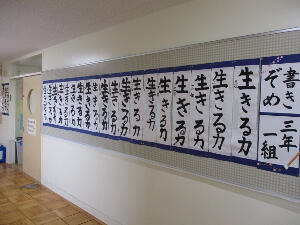 書きぞめ
三年一組
生きる力
生きる力
生きる力
生きる力
生きる力
生きる力
生きる力
生きる力
生きる力
生きる力
生きる力
生きる力
生きる力